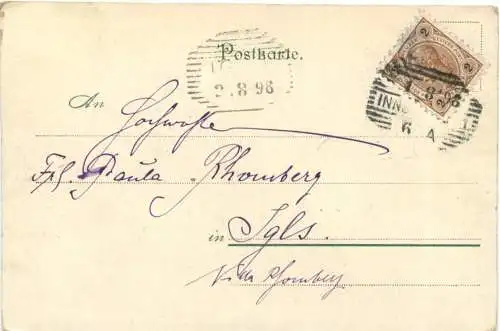 Postkarte.
2.8.98
2 2
8.98
INNS
6 A
An Hochwohlg
Frl. Paula Rhomberg
in Igls.
Villa Rhomberg